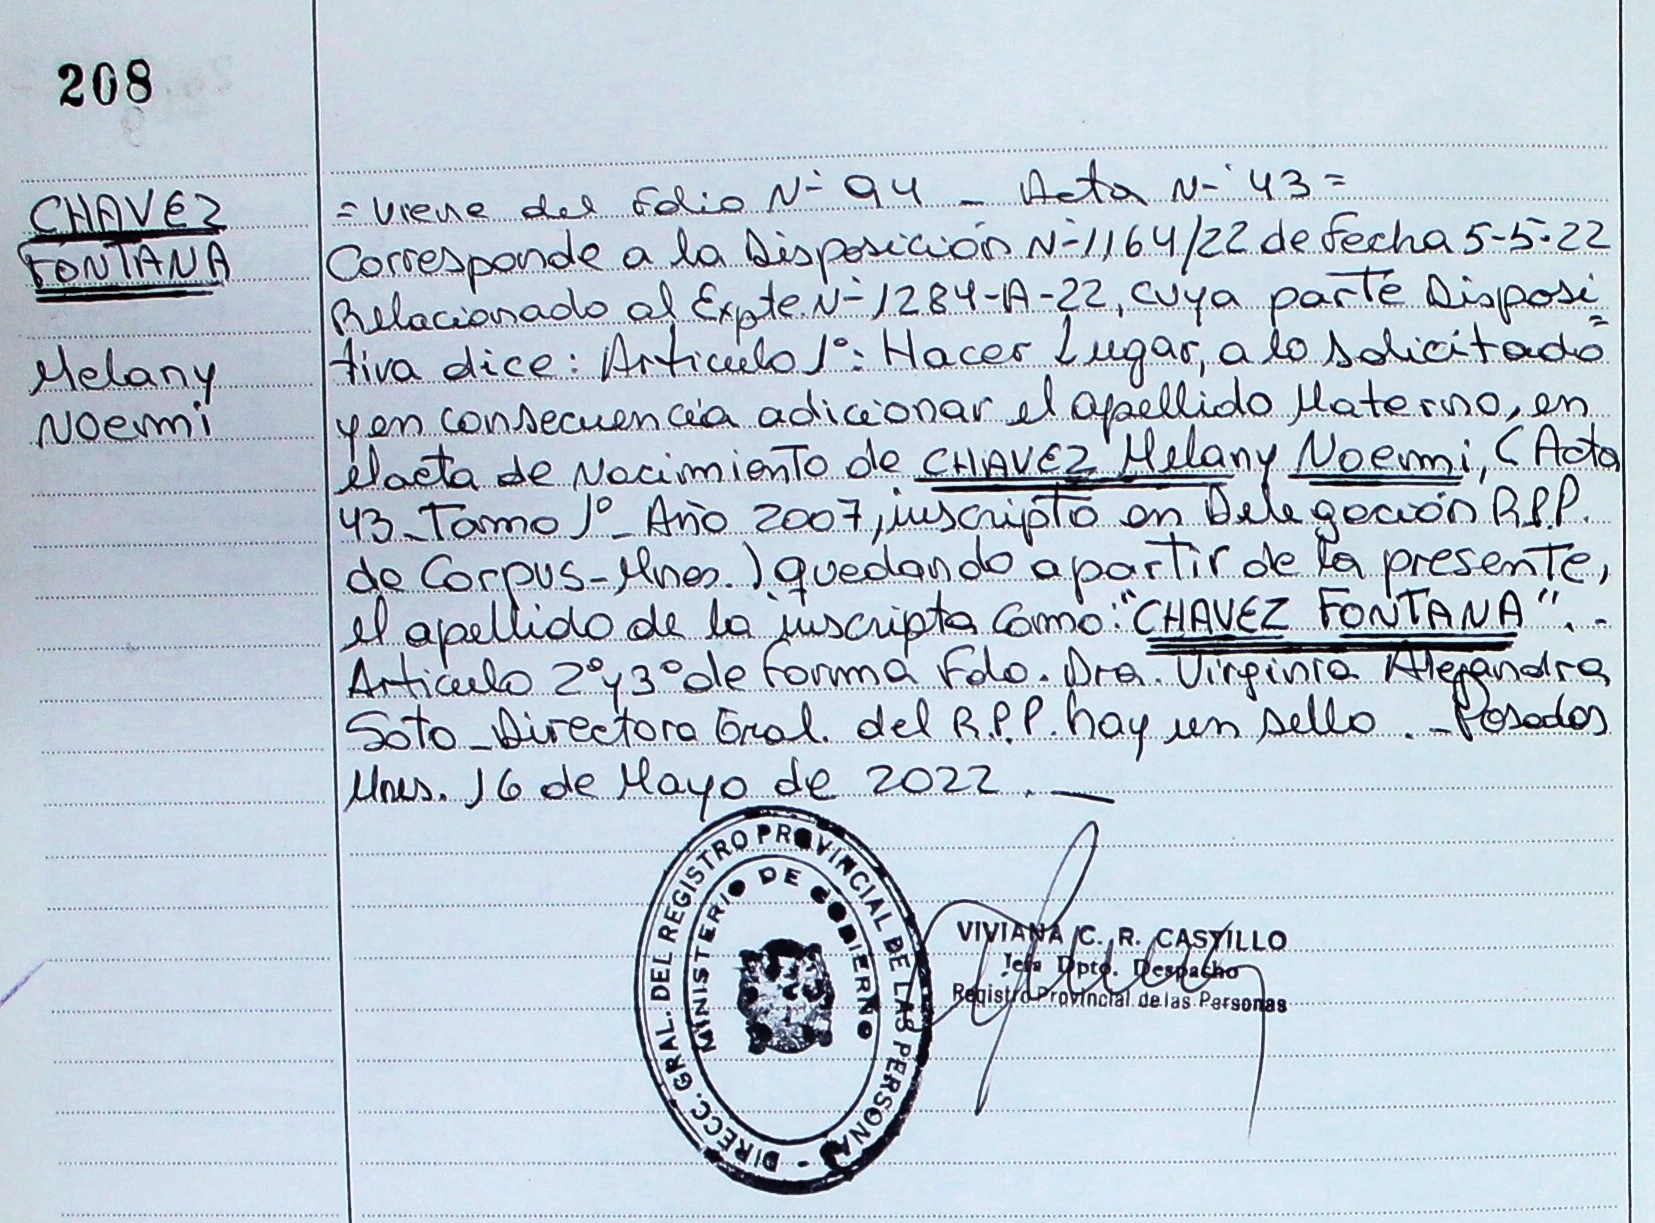 208
CHAVEZ
FONTANA
Melany
Noemi
= Viene del Folio N- 94 - Acta N- 43 =
Corresponde a la Disposición N- 1164/22 de fecha 5-5-22
Relacionado al Expte. N- 1284-A-22, cuya parte Disposi
tiva dice: Articulo 1º: Hacer Lugar, a lo solicitado
y en consecuencia adicionar el apellido Materno, en
el acta de Nacimiento de CHAVEZ Melany Noemi, (Acta
43 - Tomo 1º - Año 2007, inscripto en Delegación R.P.P.
de Corpus - Mnes.) quedando a partir de la presente,
el apellido de la inscripta como: "CHAVEZ FONTANA". -
Articulo 2º y 3º de forma Fdo. Dra. Virginia Alejandra
Soto - Directora Gral. del R.P.P. hay un sello . - Posadas
Mnes. 16 de Mayo de 2022 . —
DIRECC. GRAL. DEL REGISTRO PROVINCIAL DE LAS PERSONAS -
MINISTERIO DE GOBIERNO
VIVIANA C. R. CASTILLO
Jefa Dpto. Despacho
Registro Provincial de las Personas